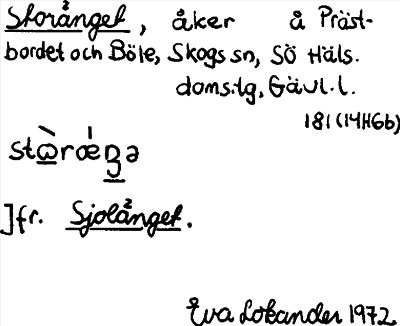 Storänget, åker å Präst-
bordet och Böle, Skogs sn, Sö Häls.
doms.lg, Gävl. l.
181 (14HGb)
stɷ̀rǽŋə
Jfr. Sjolänget.
Eva Lokander 1972